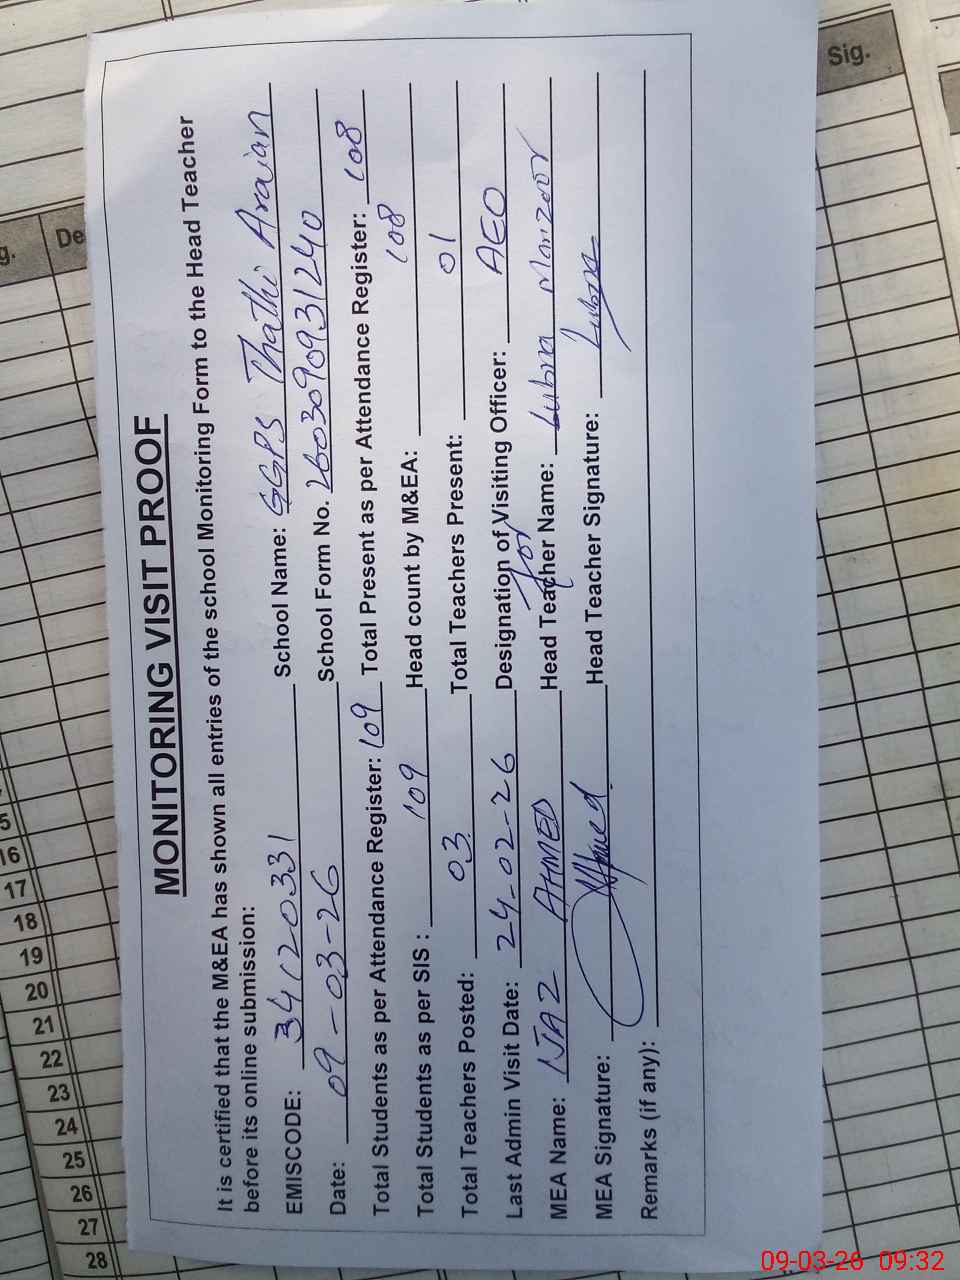 MONITORING VISIT PROOF
It is certified that the M&EA has shown all entries of the school Monitoring Form to the Head Teacher
before its online submission:
EMISCODE: 34120331 School Name: GGPS Thathi Araian
Date: 09-03-26 School Form No. 2603090931240
Total Students as per Attendance Register: 109 Total Present as per Attendance Register: 108
Total Students as per SIS : 109 Head count by M&EA: 108
Total Teachers Posted: 03 Total Teachers Present: 01
Last Admin Visit Date: 24-02-26 Designation of Visiting Officer: AEO
for
MEA Name: IJAZ AHMED Head Teacher Name: Lubna Manzoor
MEA Signature: Ahmed Head Teacher Signature: Lubna
Remarks (if any):
Sig.
g.
De
5
16
17
18
19
20
21
22
23
24
25
26
27
28
09-03-26 09:32